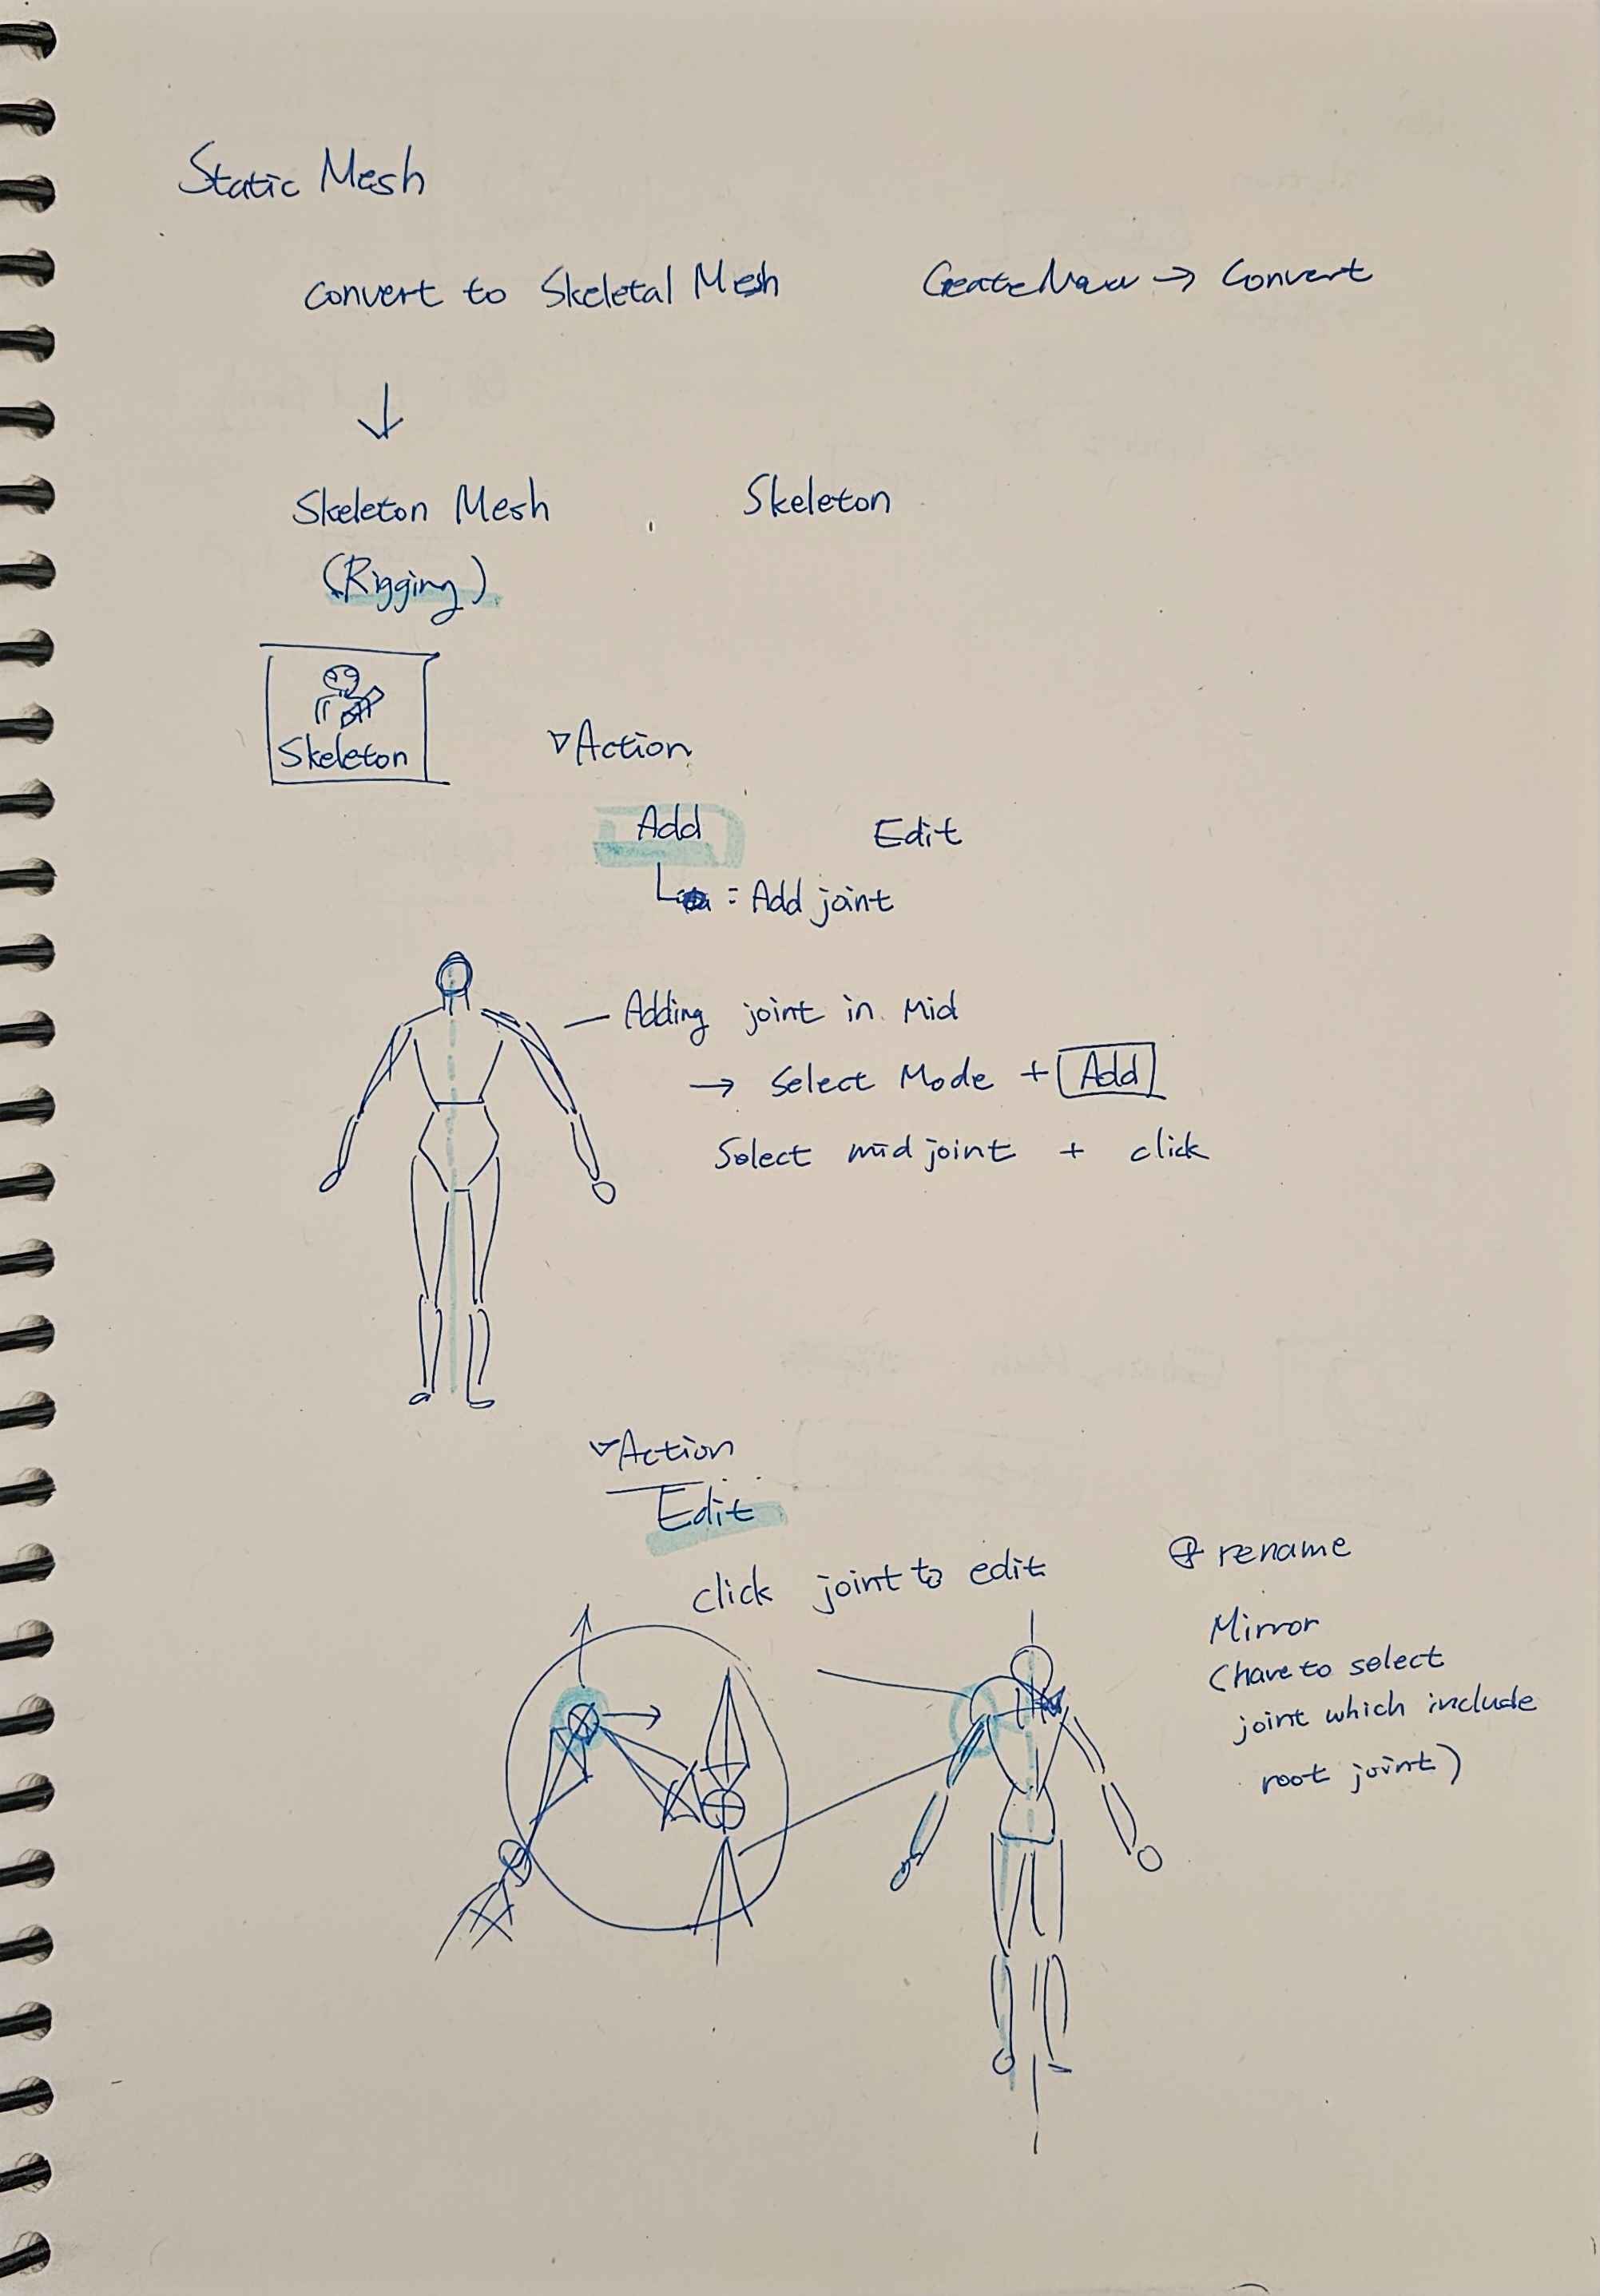 Static Mesh
convert to Skeletal Mesh Create New → Convert
↓
Skeleton Mesh , Skeleton
(Rigging)
Skeleton
▽Action
Add Edit
: Add joint
— Adding joint in Mid
→ Select Mode + Add
Select mid joint + click
▽Action
Edit
click joint to edit
⊕ rename
Mirror
(have to select
joint which include
root joint)